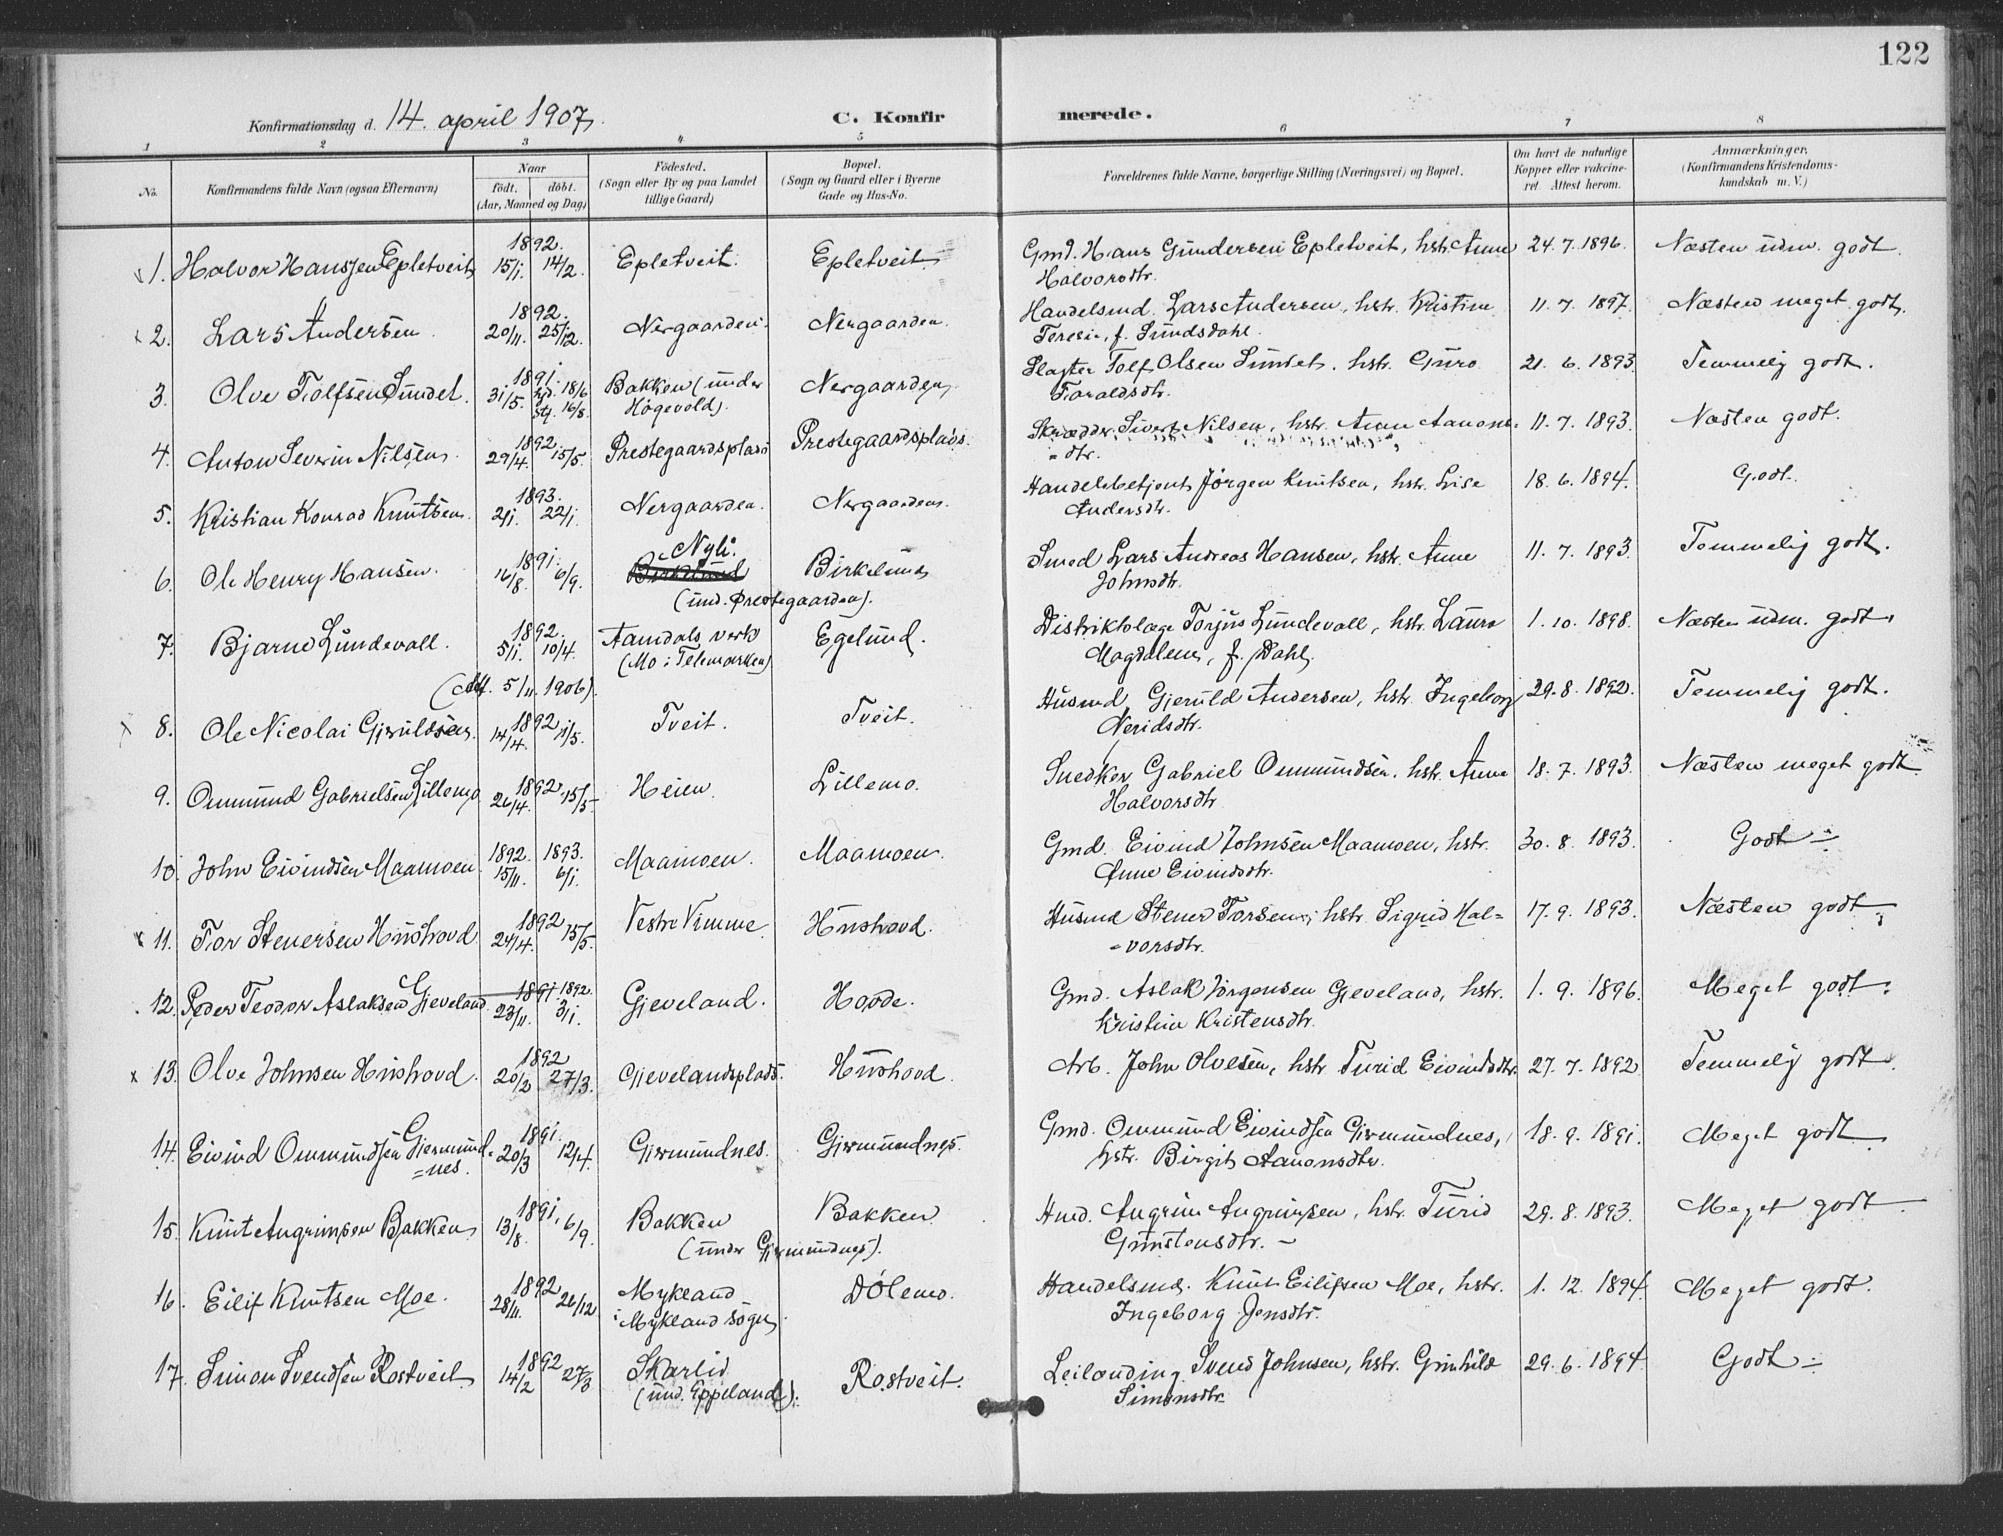 122
Konfirmationsdag d. 14. april 1907.
C. Konfirmerede.
1 2 3 4 5 6 7 8
No. Konfirmandens fulde Navn (ogsaa Efternavn) Naar født. døbt. (Aar, Maaned og Dag) Fødested. (Sogn eller By og paa Landet tillige Gaard) Bopæl. (Sogn og Gaard eller i Byerne Gade og Hus-No. Forældrenes fulde Navne, borgerlige Stilling (Næringsvei) og Bopæl. Om havt de naturlige Kopper eller vakcineret. Attest herom. Anmærkninger. (Konfirmandens Kristendomskundskab m. V.)
1. Halvor Hanssen Epletveit 1892. 15/1. 14/2. Epletveit. Epletveit Gmd. Hans Gundersen Epletveit, hstr. Anne 24.7.1896. Næsten udm. godt.
Halvorsdtr.
2. Lars Andersen. 1892. 20/11. 25/12. Nergaarden. Nergaarden. Handelsmd. Lars Andersen, hstr. Kristine 11.7.1897. Næsten meget godt.
Teresie, f. Sundsdahl.
3. Olve Tolfsen Sundet. 1891. 31/5. hjd. 18/6 stf. 16/8. Bakken (under Nergaarden. Slagter Tolf Olsen Sundet. hstr. Guro 21.6.1893. Temmelig godt.
Høgevold). Taraldsdtr.
4. Anton Severin Nilsen. 1892. 29/4. 15/5. Prestegaardsplads Prestegaardsplads. Skrædder Sivert Nilsen, hstr. Anne Aanons- 11.7.1893. Næsten godt.
-dtr.
5. Kristian Konrad Knutsen. 1893. 2/1. 22/1. Nergaarden. Nergaarden. Handelsbetjent Jørgen Knutsen, hstr. Lise 18.6.1894. Godt.
Andersdtr.
Nyli.
6. Ole Henry Hansen. 1891. 16/8. 6/9. Birkelund Birkelund Smed Lars Andreas Hansen, hstr. Anne 11.7.1893. Temmelig godt.
(und. Prestegaarden). Johnsdtr.
7. Bjarne Lundevall. 1892. 5/1. 10/4. Aamdals verk Egelund. Distriktslæge Torjus Lundevall, hstr. Laura 1.10.1898. Næsten udm. godt.
(Mo i Telemarken) Magdalena, f. Dahl.
(5/11. 1906).
8. Ole Nicolai Gjeruldsen. 1892 14/4. 1/5. Tveit. Tveit. Husmd. Gjeruld Andersen, hstr. Ingeborg 29.8.1892. Temmelig godt.
Neridsdtr.
9. Ommund Gabrielsen Lillemo 1892 26/4. 15/5. Heien. Lillemo. Snedker Gabriel Ommundsen, hstr. Anne 18.7.1893. Næsten meget godt.
Halvorsdtr
10. John Eivindsen Maamoen 1892. 15/11. 1893. 6/1. Maamoen. Maamoen. Gmd. Eivind Johnsen Maamoen, hstr. 30.8.1893. Godt
Anne Eivindsdtr.
11. Tor Stenersen Hushovd 1892 24/4. 15/5. Vestre Vimme Hushovd. Husmd Stener Torsen, hstr. Sigrid Hal= 17.9.1893. Næsten godt
=vorsdtr.
12. Peder Teodor Aslaksen Gjeveland 1891 23/11. 1892. 3/1. Gjeveland. Hovde. Gmd. Aslak Jørgensen Gjeveland, hstr. 1.9.1896. Meget godt.
Kristine Kristensdtr.
13. Olve Johnsen Hushovd 1892 20/2 27/3. Gjevelandsplads. Hushovd. Arb. John Olvesen, hstr Turid Eivindsdtr. 27.7.1892 Temmelig godt
14. Eivind Ommundsen Gjermund- 1891. 20/3 12/4. Gjermundnes. Gjermundnes. Gmd. Ommund Eivindsen Gjermundnes, 18.9.1891. Meget godt
=nes. hstr. Birgit Aanonsdtr.
15. Knut Angrimsen Bakken 1891. 13/8. 6/9. Bakken Bakken Hmd. Angrim Angrimsen, hstr. Turid 29.8.1893. Meget godt
(under Gjermundnes). Gunstensdtr.
16. Eilif Knutsen Moe. 1892 28/11. 26/12 Mykland Dølemo. Handelsmd. Knut Eilifsen Moe, hstr. 1.12.1894. Meget godt.
i Mykland sogn. Ingeborg Jensdtr.
17. Simon Svendsen Rostveit 1892 14/2 27/3 Skarlid Rostveit. Leilænding Svend Johnsen, hstr. Gunhild 29.6.1894 Godt
(und. Eppeland). Simonsdtr.